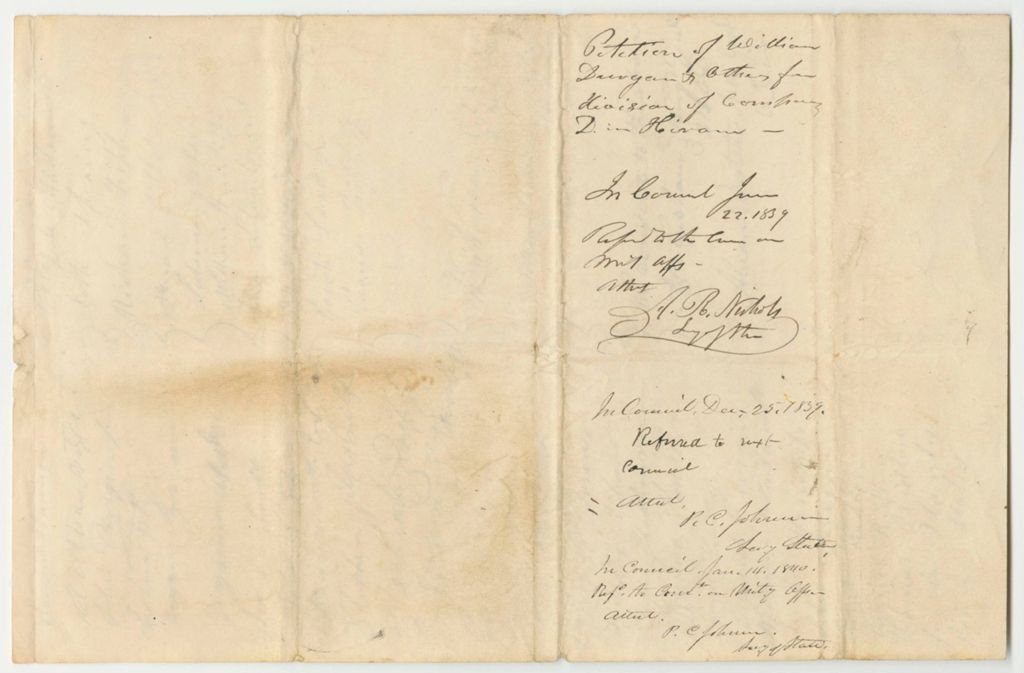 Petition of William
& Others for
division of Company
D. in Hiram —
In Council
22. 1839
Refd to the Com on
Mil Affs -
Attest
A. R. Nichols
Secy of State
In Council. Dec. 25. 1839.
Referred to next
Council
Attest,
P. C. Johnson
Secy State,
In Council. Jan. 14. 1840.
Refd. to Comt. on Milty Affrs
Attest.
P. C Johnson.
Secy of State.